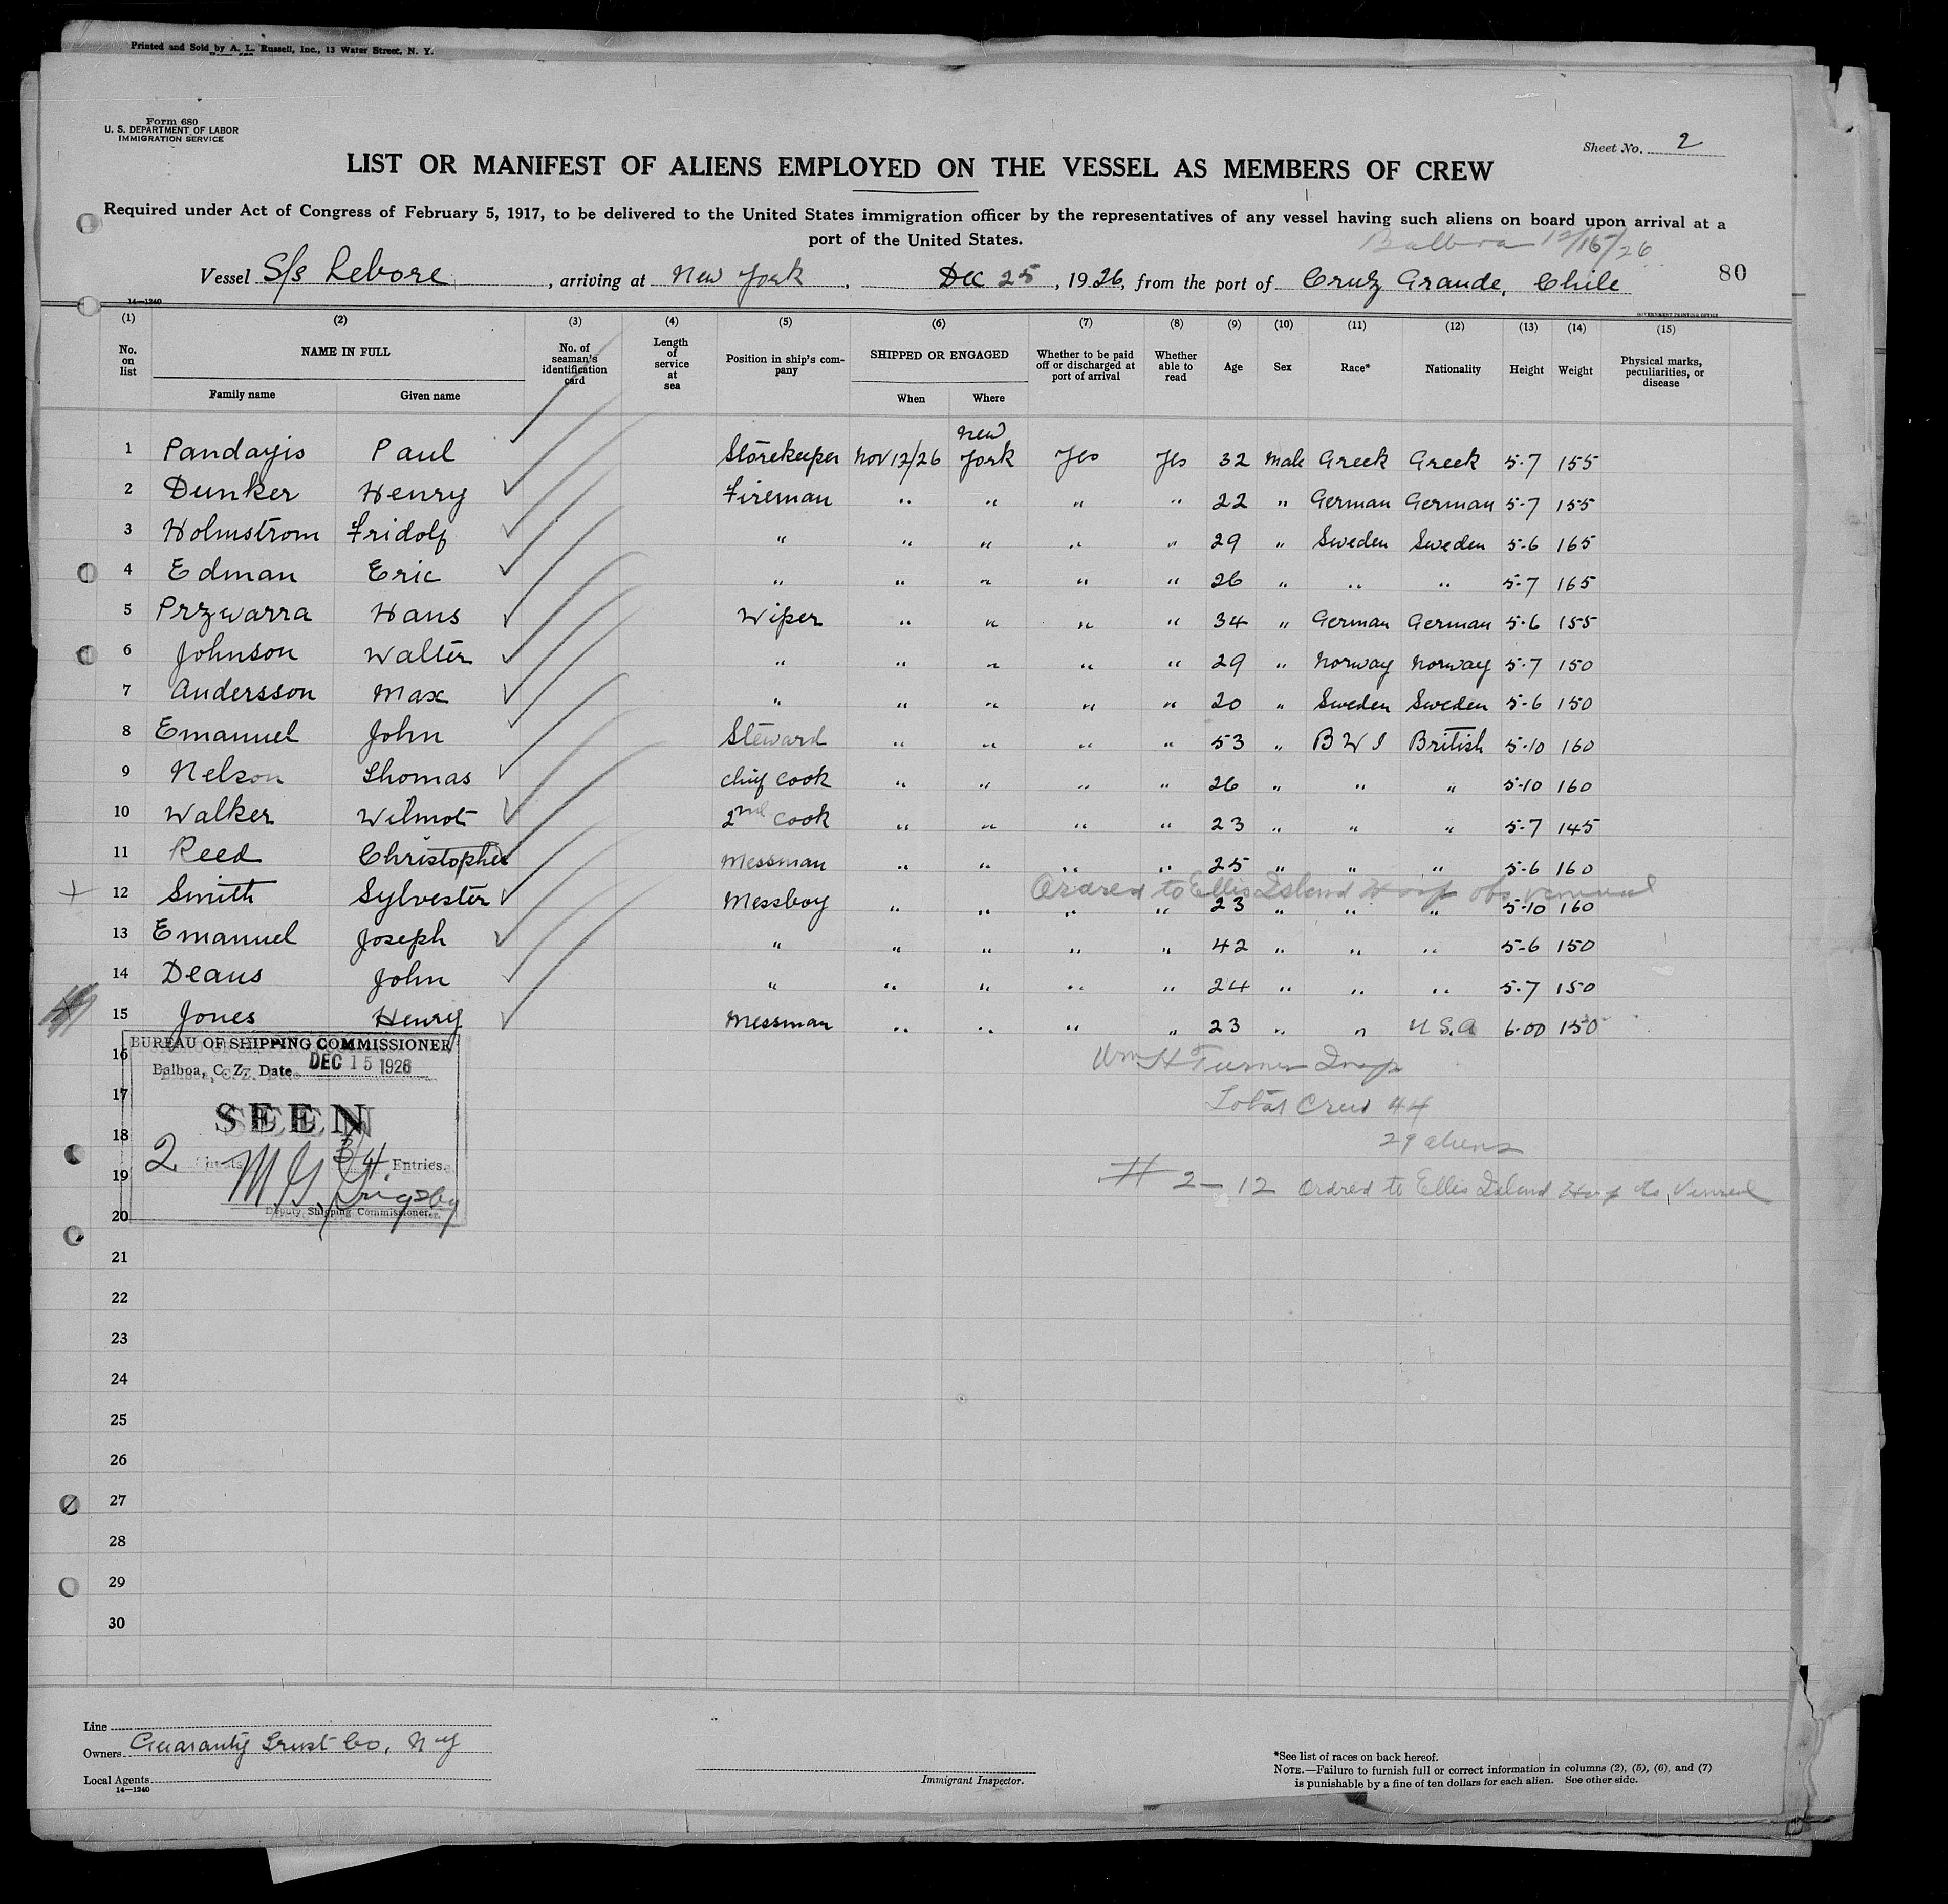 Printed and Sold by A. L. Russell, Inc., 13 Water Street, N. Y.
Form 680
U. S. DEPARTMENT OF LABOR
IMMIGRATION SERVICE
Sheet No. 2
LIST OR MANIFEST OF ALIENS EMPLOYED ON THE VESSEL AS MEMBERS OF CREW
Required under Act of Congress of February 5, 1917, to be delivered to the United States immigration officer by the representatives of any vessel having such aliens on board upon arrival at a
port of the United States.
Balboa 12/15/26
Vessel S/s Lebore, arriving at New York, Dec 25, 1926, from the port of Cruz Grande, Chile
80
14—1240
GOVERNMENT PRINTING OFFICE
(1) (2) (3) (4) (5) (6) (7) (8) (9) (10) (11) (12) (13) (14) (15)
No. on list NAME IN FULL No. of seaman's identification card Length of service at sea Position in ship's company SHIPPED OR ENGAGED Whether to be paid off or discharged at port of arrival Whether able to read Age Sex Race* Nationality Height Weight Physical marks, peculiarities, or disease
Family name Given name When Where
1 Pandazis Paul Storekeeper Nov 12/26 New York Yes Yes 32 Male Greek Greek 5-7 155
2 Dunker Henry Fireman " " " " 22 " German German 5-7 155
3 Holmstrom Fridolf " " " " " 29 " Sweden Sweden 5-6 165
4 Edman Eric " " " " " 26 " " " 5-7 165
5 Przwarra Hans Wiper " " " " 34 " German German 5-6 155
6 Johnson Walter " " " " " 29 " Norway Norway 5-7 150
7 Andersson Max " " " " " 20 " Sweden Sweden 5-6 150
8 Emanuel John Steward " " " " 53 " B W I British 5-10 160
9 Nelson Thomas Chief Cook " " " " 26 " " " 5-10 160
10 Walker Wilmot 2nd Cook " " " " 23 " " " 5-7 145
11 Reed Christopher Messman " " " " 25 " " " 5-6 160
Ordred to Ellis Island Hosp obs venereal
12 Smith Sylvester Messboy " " " " 23 " " " 5-10 160
13 Emanuel Joseph " " " " " 42 " " " 5-6 150
14 Deans John " " " " " 24 " " " 5-7 150
15 Jones Henry Messman " " " " 23 " " U S. A 6-00 150
BUREAU OF SHIPPING COMMISSIONER
16
Balboa, C. Z. Date DEC 15 1926
Wm H Turner Insp
17
SEEN
Total Crew 44
18
29 aliens
2 34 Entries.
19
# 2 — 12 Ordred to Ellis Island Hosp obs, Venereal
M. G. Grigsby
Deputy Shipping Commissioner.
20
21
22
23
24
25
26
27
28
29
30
Line
Owners Guaranty Trust Co, N Y
Local Agents
14—1240
Immigrant Inspector.
*See list of races on back hereof.
NOTE.—Failure to furnish full or correct information in columns (2), (5), (6), and (7)
is punishable by a fine of ten dollars for each alien. See other side.